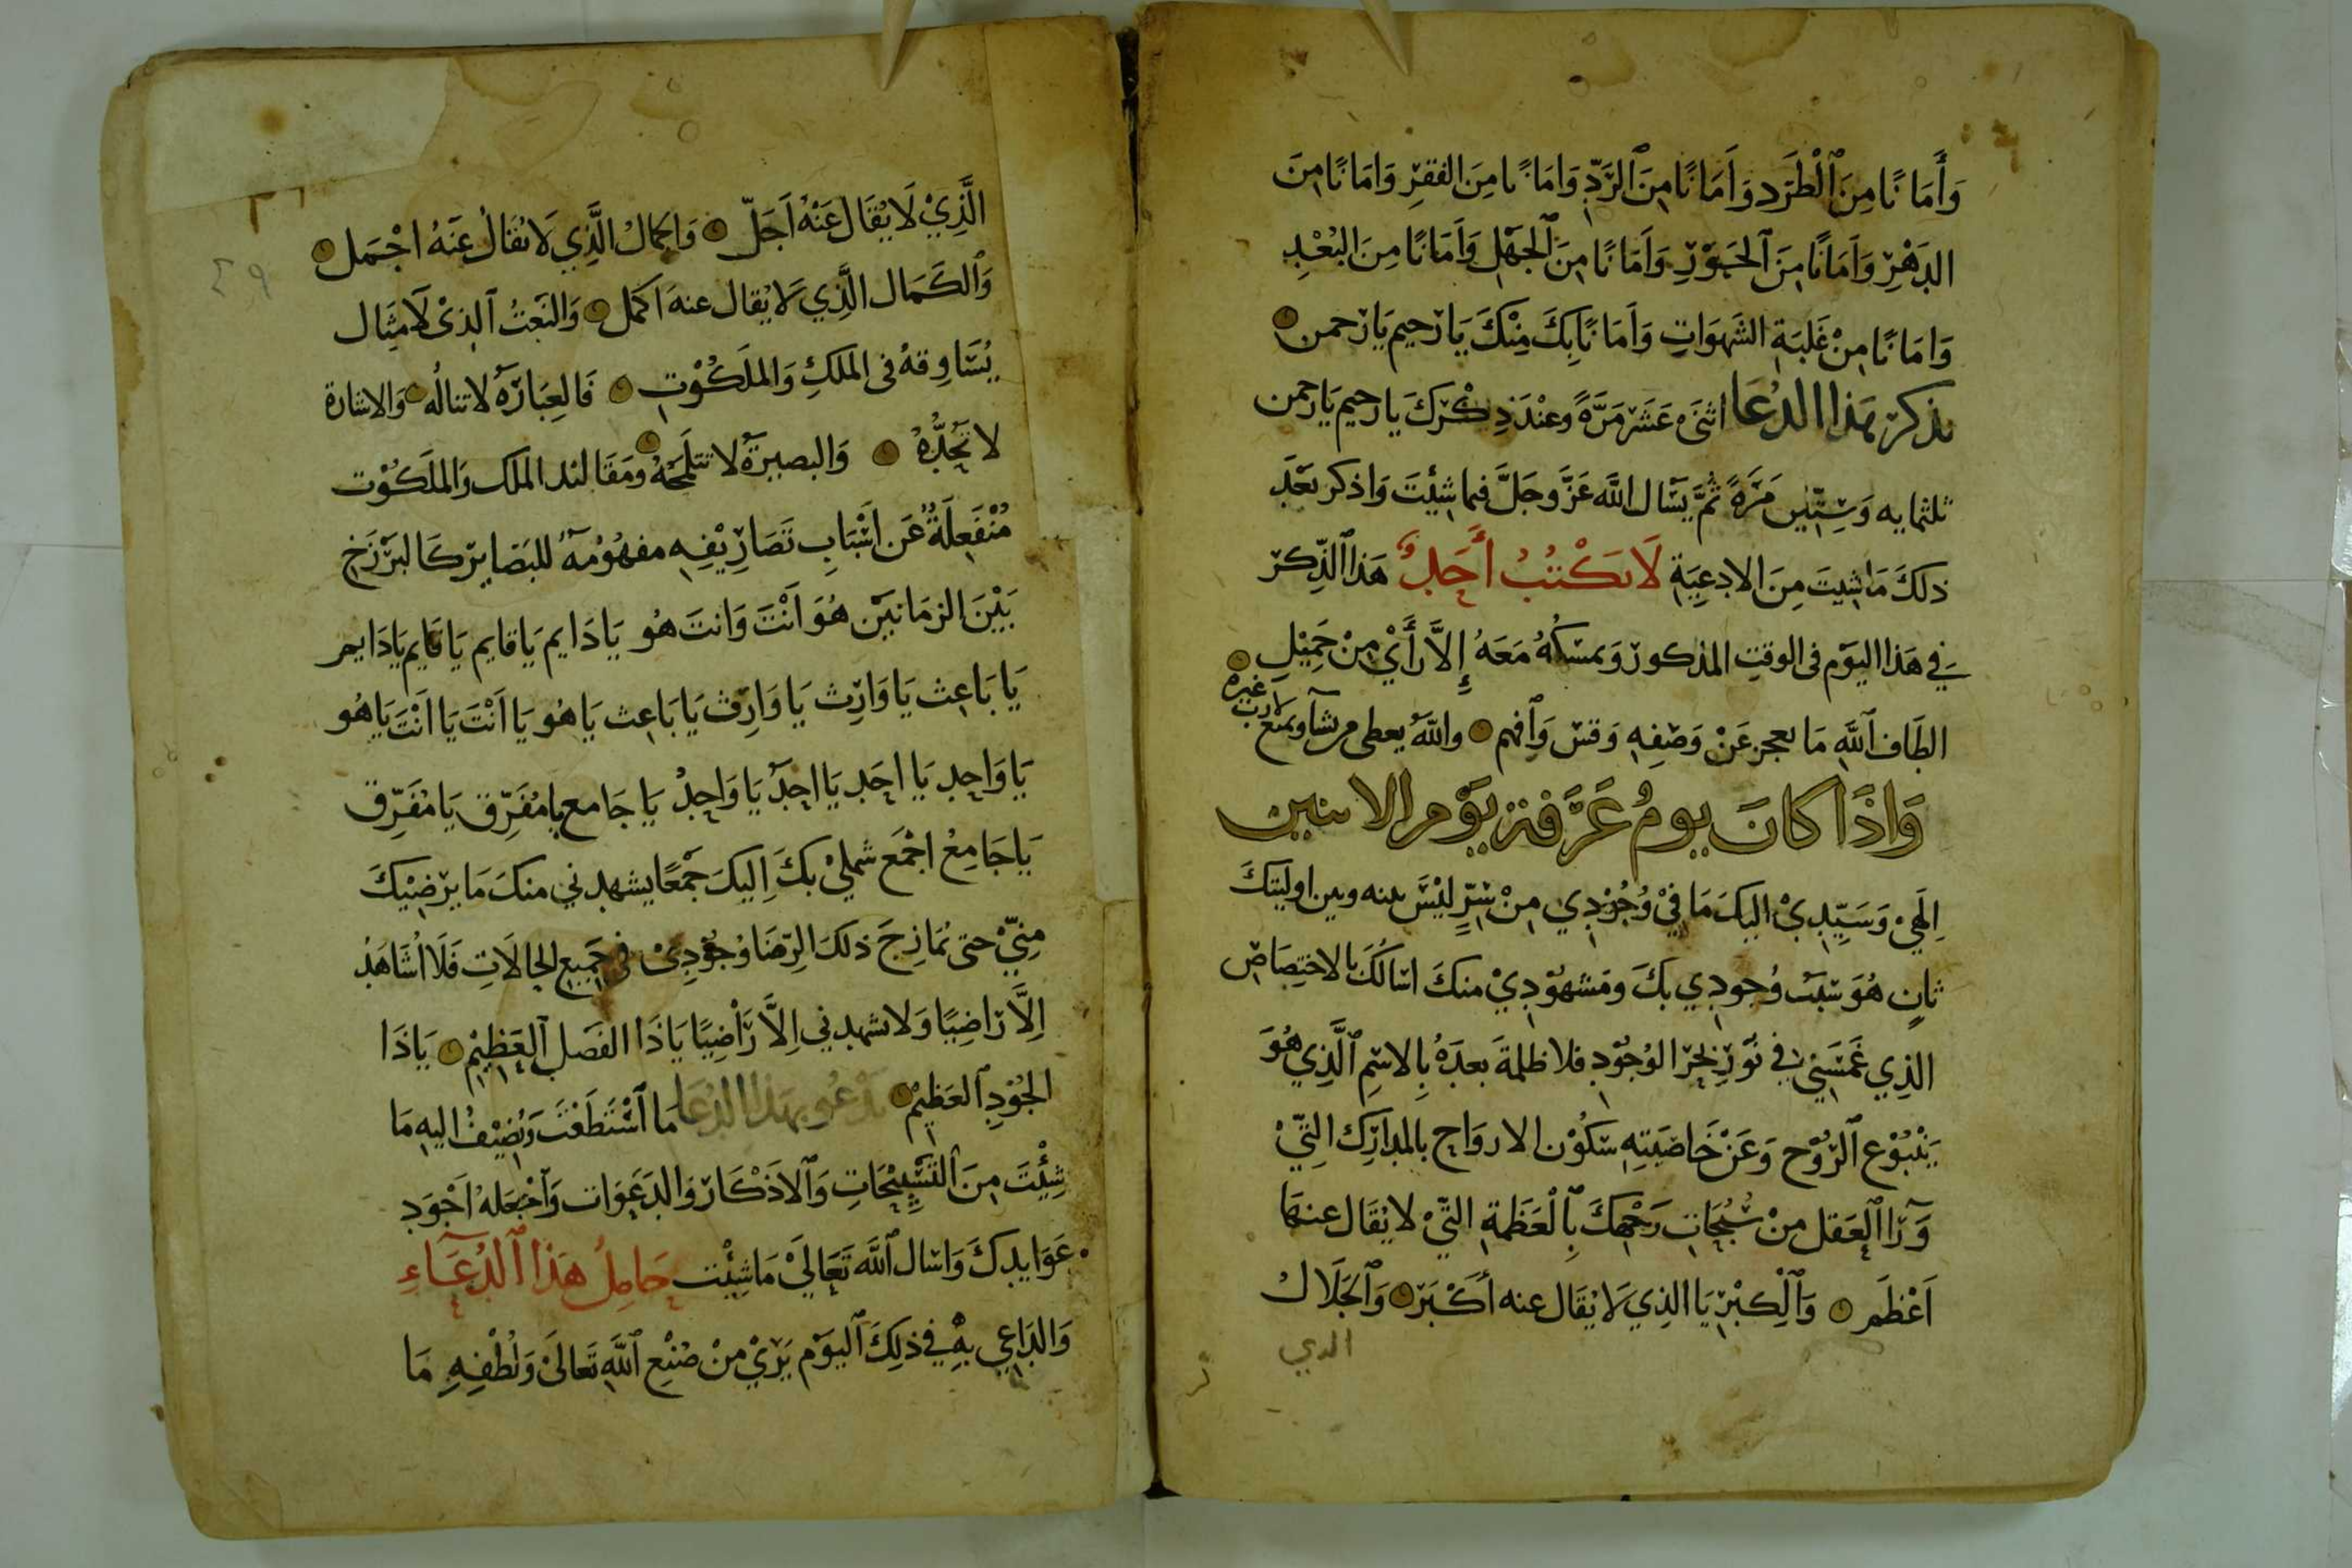 وَأَمَانًا مِنَ ٱلْطَرَد وَأَمَانًا مِنَ ٱلرَّدِّ وَامَانًا مِنَ الفقرِ وَامَانًا مِنَ
الدَهْرِ وَاَمَانًا مِنَ ٱلحَوْرِ وَاَمَانًا مِنَ ٱلجَهْلِ وَاَمَانًا مِنَ البُعْدِ
وَامَانًا مِنْ غَلَبَةِ الشَهوَاتِ وَاَمَانًا بِكَ مِنْكَ يَا رَحيم يَا رَحمن
يذكر بهَذا الدُعَا اثنَىْ عَشَرَ مَرَّةً وعنْدَ ذِكْرِكَ يا رحيم يَا رحمن
ثلثمايه وَسِتّين مَرَةً ثُمَّ يَسَال اللَّه عَزَّ وجَلَّ فيما شِئتَ وَاذكر بَعْدَ
ذلكَ مَا شِيتَ مِنَ الادعِيَةِ لَا يَكْتُبُ أَحَدٌ هَذا ٱلذِّكر
في هَذا اليَوْم فى الوقتِ المذكور وَيمسكُهُ مَعَهُ إِلاَّ رَأَيْ مِنْ جَمِيْلِ
الطَاف ٱللَّهِ مَا يعجز عَنْ وَصْفِهِ وَقس وَٱفهم واللّهُ يعطى من يشآ ويمنع لا رب غيره
وَاذَا كانَ يومُ عَرَفة يَوْم الاثنين
اِلَهيْ وَسَيِّدِيْ اليكَ مَا فيْ وُجُوْدِي مِنْ سِرٍّ ليْسَ بينه وبين اوليتكَ
ثانٍ هُوَ سَبَبُ وُجودِي بكَ وَمَشهوُدِيْ منكَ اسَالُكَ بالاختِصَاصْ
الذِي غَمَسَنِي في نُوْرِ بَحْرِ الوُجُوْدِ فلا ظلمَةَ بعدَهُ بِالاسْمِ ٱلَّذِي هُوَ
يَنْبُوْع ٱلرّوُح وَعَنْ خَاصّيَتِهِ سَكوُن الارواحِ بالمدَارِك التِّيْ
وَرَآ ٱلعَقل مِنْ سُبُحَاتِ وَجهِكَ بِٱلْعَظَمةِ التّيْ لا يُقَال عنهَا
اَعْظَم وَٱلْكِبْرِيَا الذِي لَا يُقَال عنه أكْبَر وَٱلجَلَال
الدي
الَّذِيْ لَا يُقَال عَنْهُ اَجَلّ وَالجمَالُ الَّذِي لَا يُقَالُ عَنْهُ اجْمَل
وَٱلكَمَال الَّذِي لَا يُقال عنه اكمَل وَالنَعتُ ٱلذىْ لَا مِثَال
يُسَاوِقهُ فى الملكِ وَالملَكُوْتِ فَالعِبَارَةُ لا تنالُه والاشارة
لا تحُدُّهُ وَالبصيرَةُ لا تتلمحَهُ ومقَاليد الملك وَالملَكُوْت
مُنْفَعِلَةٌ عَن اَسْبَابِ تَصَارِيْفِهِ مفهُوْمَةُ للبَصَايِر كَالبَرْزَخ
بَيْنَ الزمَانيَن هُوَ اَنْتَ وَانتَ هُو يَا دَايم يَا قايم يَا قَايم يَا دَايم
يَا بَاعِث يَا وَارِث يَا وَارِث يَا بَاعِث يَا هُو يَا اَنْتَ يَا اَنْتَ يَا هُو
يَا وَاحِد يَا احَد يَا احَدُ يَا وَاحِدُ يَا جَامع يا مُفَرِّق يَا مُفَرِّق
يَا جَامِعُ اجْمَع شمليْ بكَ اِليكَ جَمْعًا يشهدني منكَ مَا يرْضِيْكَ
مِنيّْ حتى يُمَازِجَ ذلكَ الرِّضَا وُجُوْدِىْ في جَمِيع الحالَاتِ فَلَا اُشَاهَدُ
اِلاَّ رَاضِيًا وَلا تشهدني اِلاَّ رَاْضِيًا يَا ذَا الفَضل ٱلعَظِيْمِ يَا ذَا
الجُوْدِ ٱلعَظِيْمِ يَدْعُو بهَذا الدُعَا مَا ٱسْتَطَعْتَ وَيُضِيْفُ اليهِ مَا
شِئْتَ مِنَ ٱلتَسْبِيْحَاتِ وَٱلاَذْكَار وَالدَعَوَات وَٱجْعَلهُ اَجْوَد
عَوَايدكَ وَاسَال ٱللَّه تَعَاليْ مَا شِئْت حَامِلُ هَذَا ٱلدُعَآءِ
وَالدَاعِي بِهِ في ذلِكَ ٱليَوْم يَرَيْ مِنْ صُنْعِ ٱللَّهِ تَعَالَىْ وَلُطْفِهِ مَا